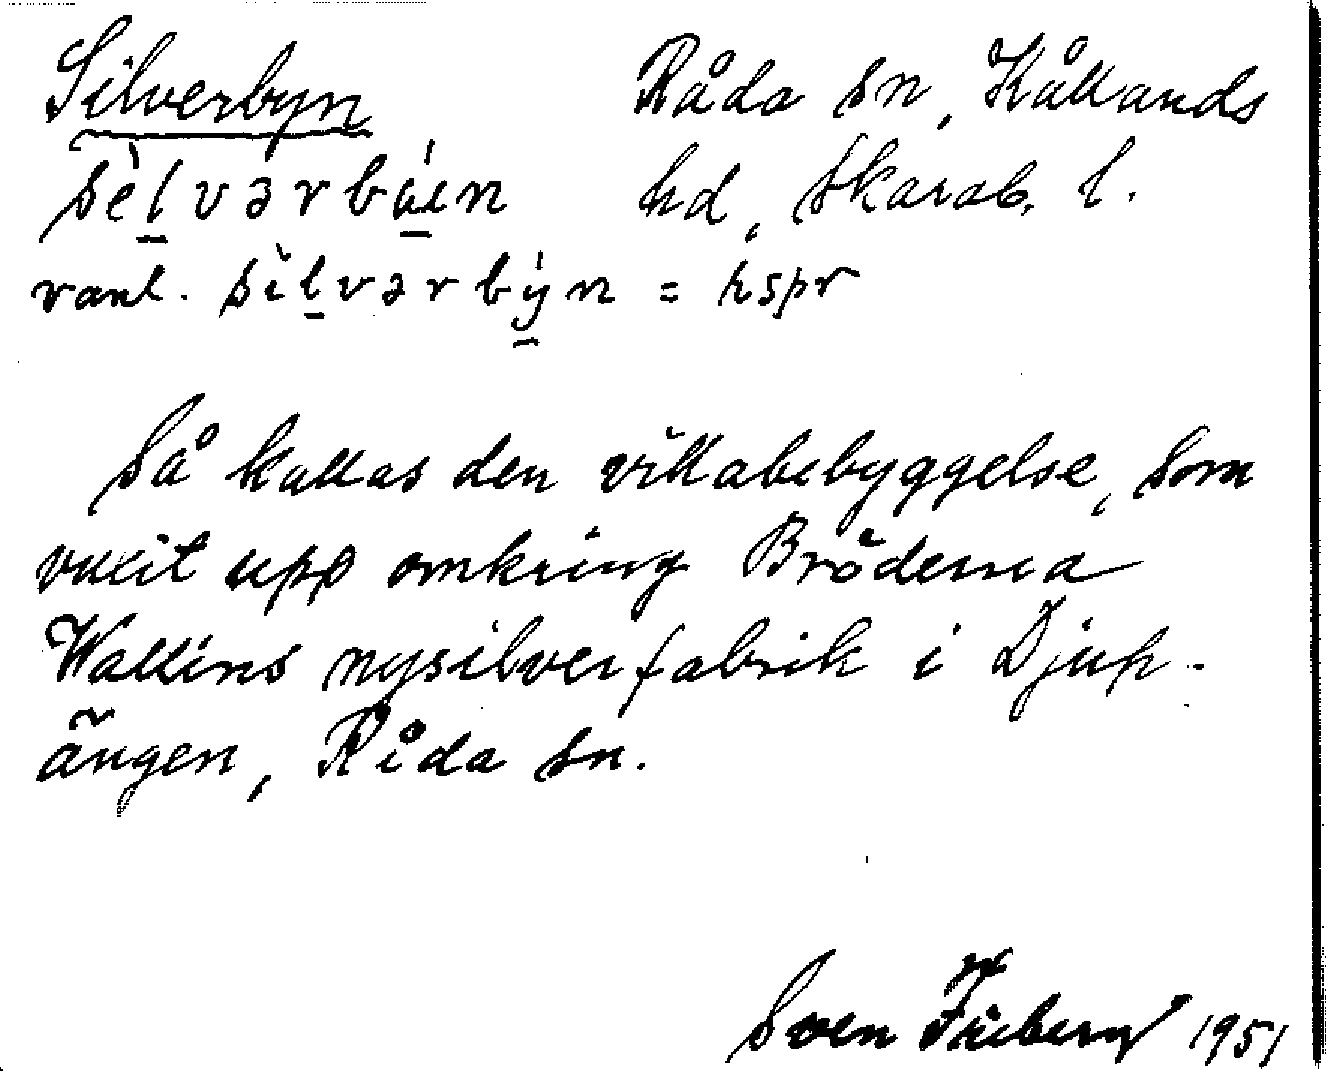 Silverbyn Råda sn, Kållands
sèlvərbúın hd, Skarab. l.
vanl. sìlvərbýn = hspr
Så kallas den villabebyggelse, som
vuxit upp omkring Bröderna
Wallins nysilverfabrik i Djup-
ängen, Råda sn.
Sven Friberg 1951